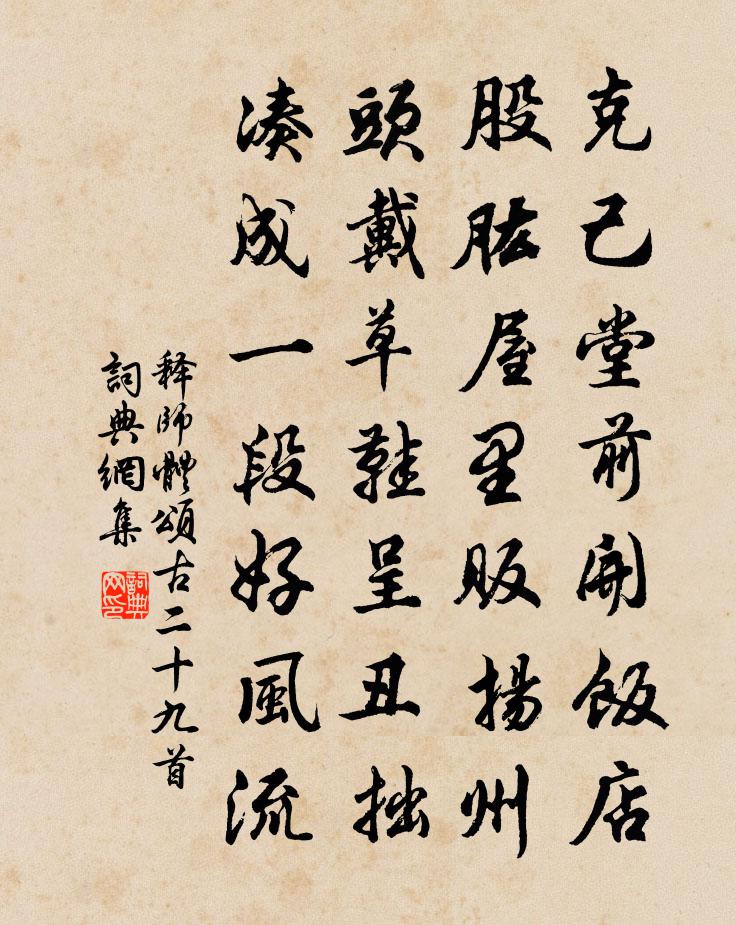 克己堂前開飯店
股肱屋里販揚州
頭戴草鞋呈丑拙
湊成一段好風流
释師體頌古二十九首
詞典網集
詞典網印